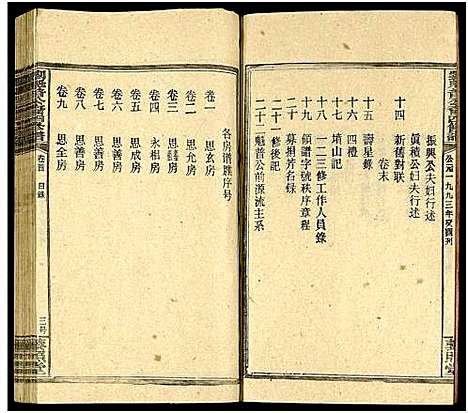 振興公夫妇行述
眞種公妇夫行述
十四 新舊對联
卷末
十五 壽星録
十六 四禮
十七 墳山記
十八 一二三修工作人員錄
十九 領譜字號秩序章程
二十 募捐芳名録
二十一 修後記
二十二 勉普公前源流主系
公元一九九三年癸酉刊
各房谱牒序号
卷一 思玄房
卷二 思允房
卷三 思䕫房
卷四 永相房
卷五 思善房
卷六 思善房
卷七 思善房
卷八 思善房
卷九 思善房
卷首 目錄
三号